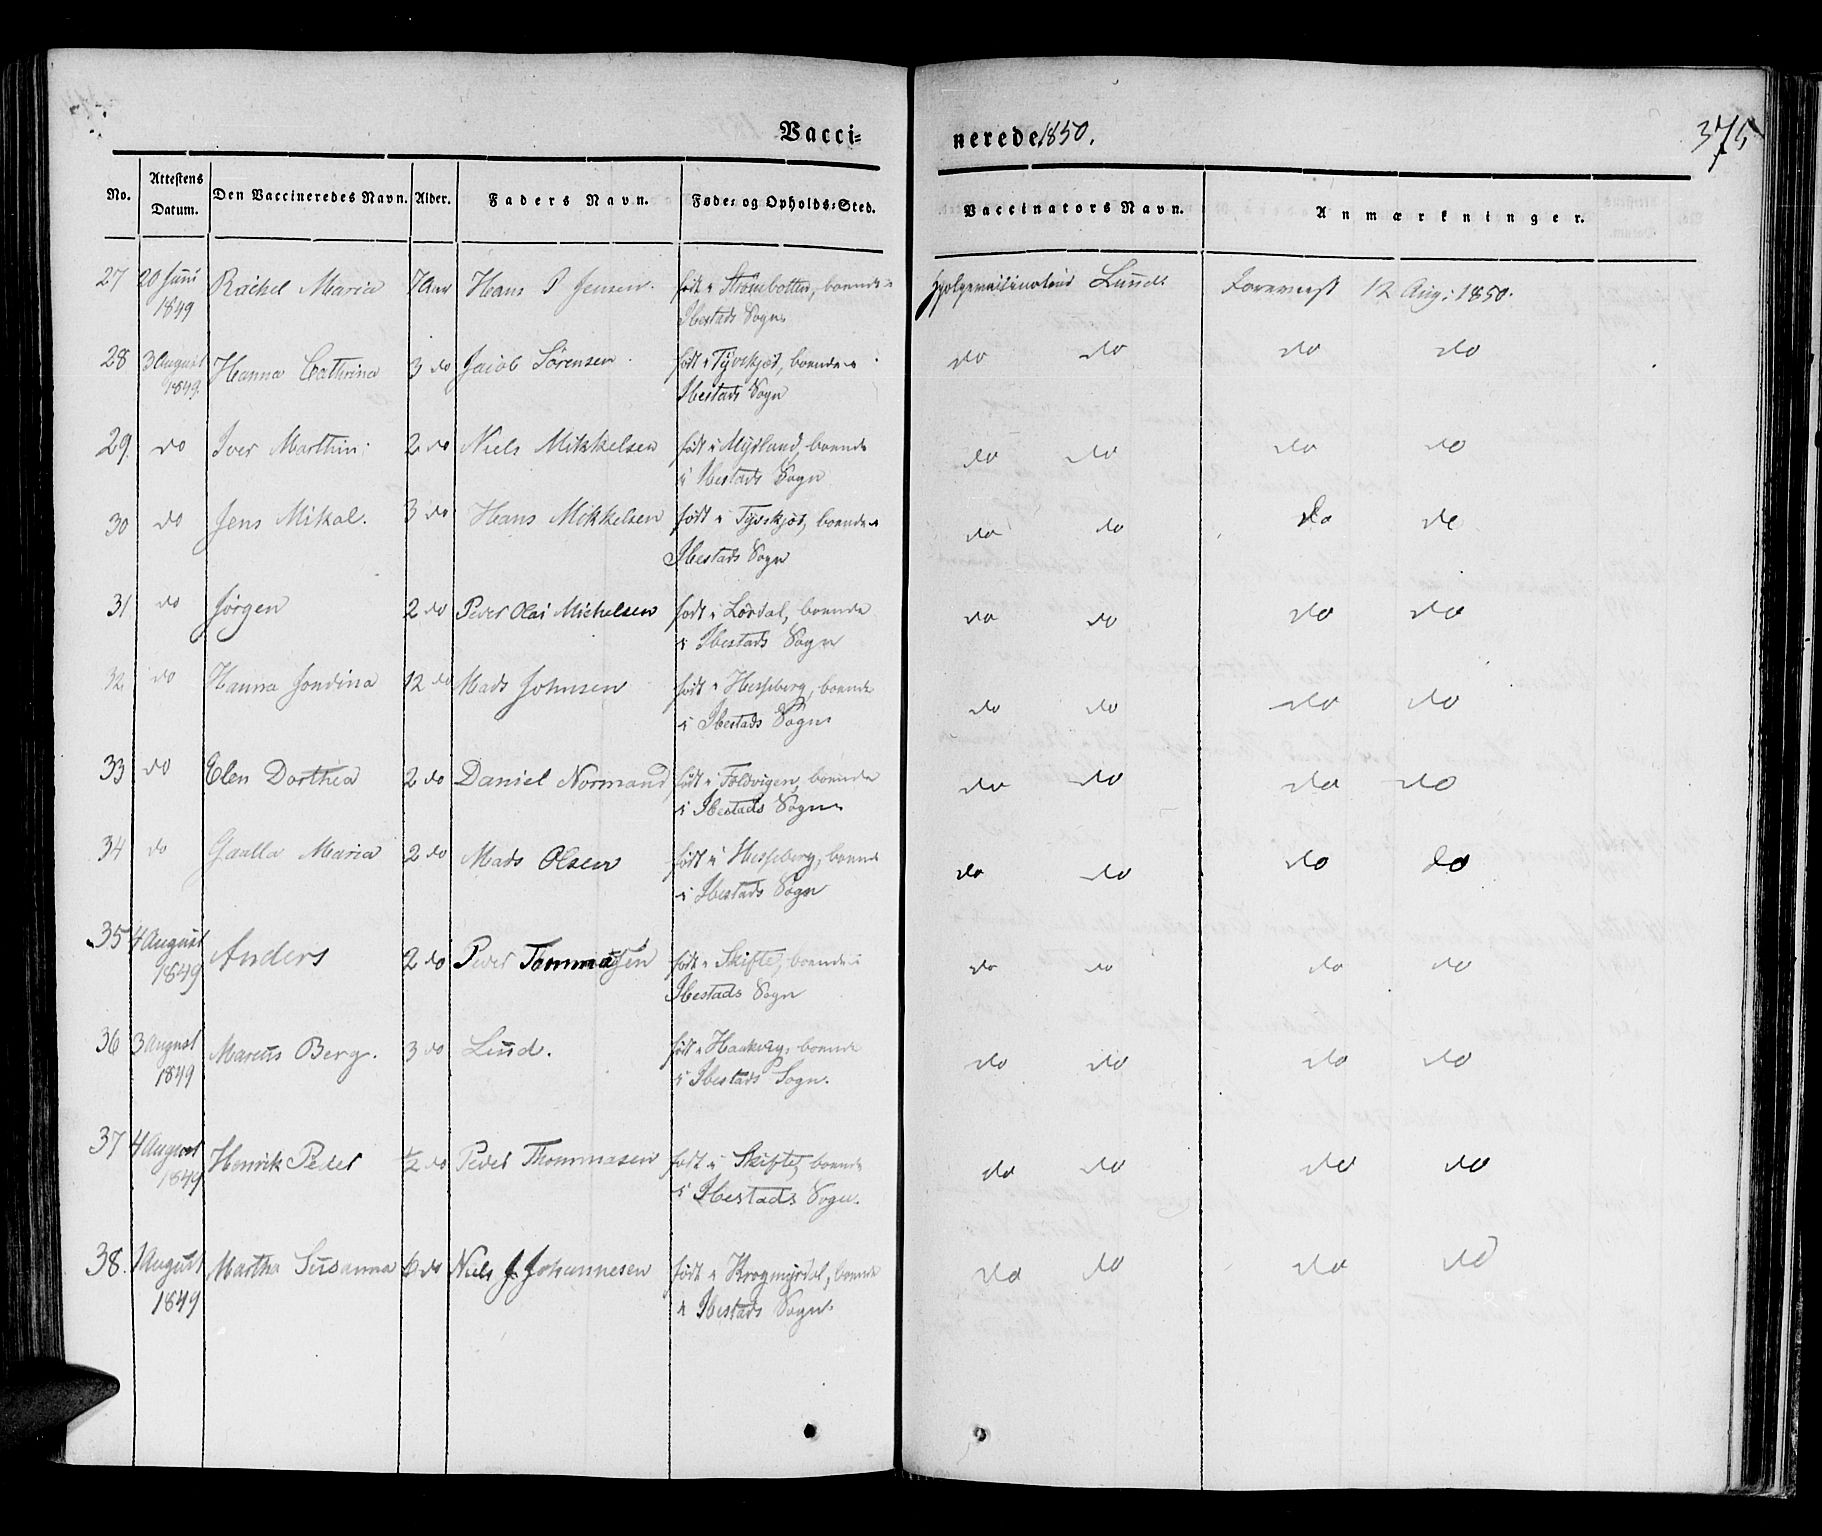 Vacci= nerede 1850. 375
No. Attestens Datum. Den Vaccineredes Navn. Alder. Faders Navn. Føde= og Opholds=Sted. Vaccinators Navn. Anmærkninger.
27 20 Juni Rachel Maria 7 Aar Hans P Jensen. født i Strombotten, boende i Lund Foreviist 12 Aug: 1850.
1849 Ibestads Sogn
28 3 August Hanna Cathrina 3 do Jacob Sørensen født i Tyvskjøt, boende i do do do do
1849. Ibestads Sogn
29. do Iver Marthin 2 do Niels Mikkelsen født i Myrland, boende do do do do
i Ibestads Sogn
30 do Jens Mikal. 3 do Hans Mikkelsen født i Tyvskjøt, boende i do do do do
Ibestads Sogn
31 do Jørgen 2 do Peder Olai Michelsen født i Lovdal, boende do do do do
i Ibestads Sogn
32 do Hanna Jondina 12 do Mads Johnsen født i Hesseberg, boende do do do do
i Ibestads Sogn
33 do Elen Dorthea 2 do Daniel Normand født i Foldvigen, boende do do do do
i Ibestads Sogn
34 do Maria 2 do Mads Olsen født i Hesseberg, boende do do do do
i Ibestads Sogn
35 4 August Anders 2 do Peder Tommasen født i Skifte, boende i do do do do
1849 Ibestads Sogn
36 3 August Marcus Berg. 3 do Lund. født i boende do do do do
1849 i Ibestads Sogn.
37 4 August Henrik Peder 1/2 do Peder Thommasen født i Skifte, boende do do do do
1849 i Ibestads Sogn.
38. 1 August Martha Susanna 6 do Niels J Johannesen født i Krogmyrdal, boende do do do do
1849 i Ibestads Sogn.